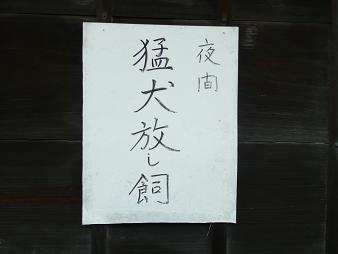 夜間
猛犬放し飼